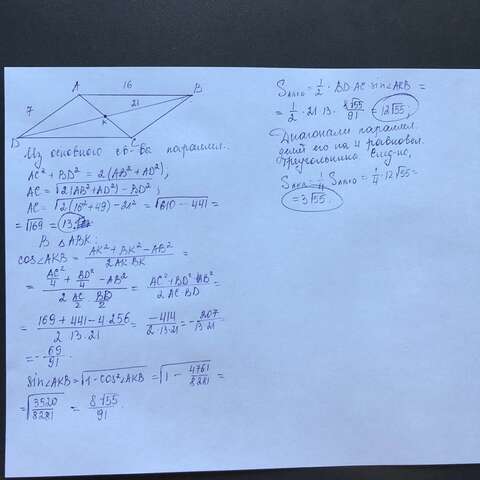 A 16 B
7 21
K
D C
Из основного св-ва параллел.
AC² + BD² = 2(AB² + AD²),
AC = √2(AB² + AD²) - BD²;
AC = √2(16² + 49) - 21² = √610 - 441 =
= √169 = 13.
В △ ABK:
cos∠AKB = AK² + BK² - AB² / 2AK·BK =
= AC²/4 + BD²/4 - AB² / 2 AC/2 · BD/2 = AC² + BD² - 4AB² / 2AC·BD =
= 169 + 441 - 4·256 / 2·13·21 = -414 / 2·13·21 = -207 / 13·21
= -69/91.
sin∠AKB = √1 - cos²∠AKB = √1 - 4761/8281 =
= √3520/8281 = 8√55/91.
S = 1/2 · BD·AC·sin∠AKB =
= 1/2 · 21·13 · 8√55/91 = 12√55;
Диагонали параллел.
делят его на 4 равновел.
треугольника. След-но,
S = 1/4 S = 1/4 · 12√55 =
= 3√55.